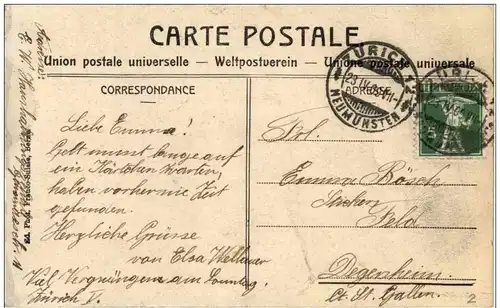 CARTE POSTALE
Union postale universelle — Weltpostverein — Unione postale universale
CORRESPONDANCE
ADRESSE
ZÜRICH 12
NEUMÜNSTER
Liebe Emma!
Gelt musst lange auf
ein Kärtchen warten,
haben vorher nie Zeit
gefunden.
Herzliche Grüsse
von Elsa Wellauer
Viel Vergnügen am Sonntag
Zürich V.
Frl.
Emma Bösch
Feld
Degersheim
Ct. St. Gallen.
2